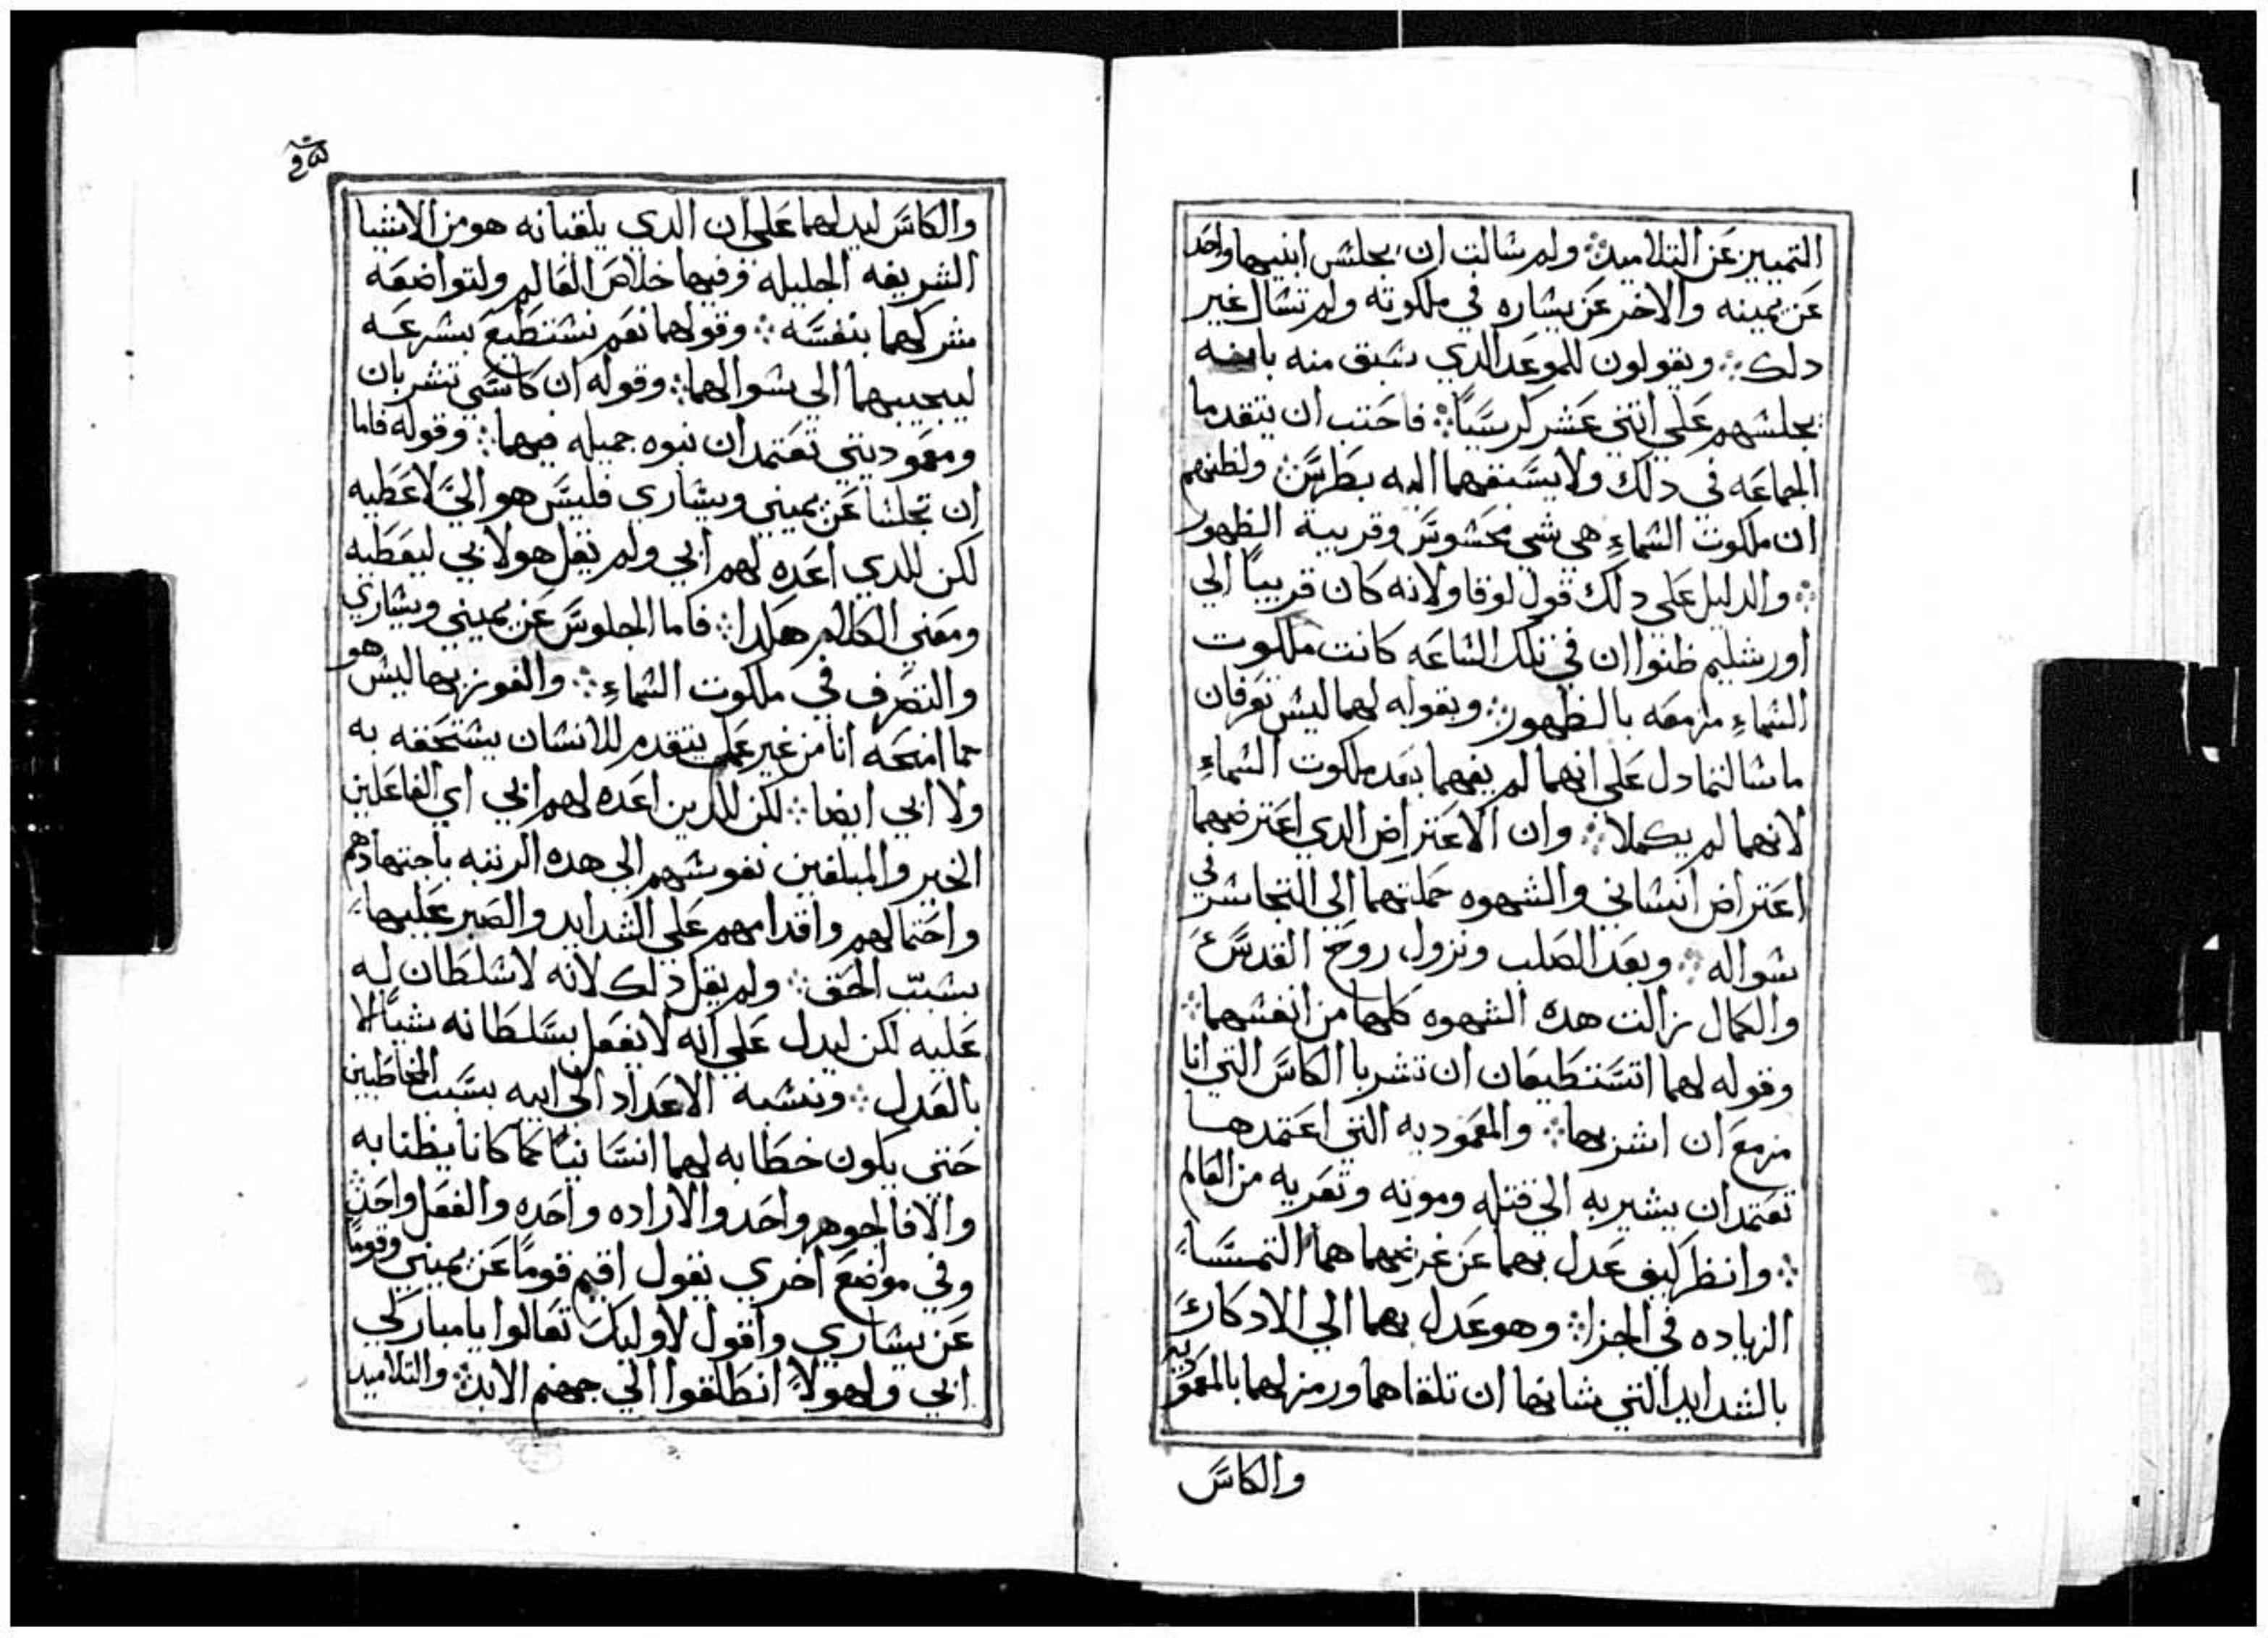 التمييز عن التلاميد ولم سالت ان يجلس ابنيهما واحد
عن يمينه والاخر عن يساره في ملكوته ولم تسال غير
دلك ويقولون للموعد الدي سبق منه بانه
يجلسهم على اثني عشر كرسيًا فاحتب ان يتقدما
الجماعه في دلك ولا يستبقهما اليه بطرس ولظنهم
ان ملكوت السماء هي شي محسوس وقريبة الظهور
والدليل على دلك قول لوقا ولانه كان قريبًا الي
اورشليم ظنوا ان في تلك الساعه كانت ملكوت
السماء مزمعه بالظهور وبقوله لهما ليس تعرفان
ما سالتما دل على انهما لم يفهما بعد ملكوت السماء
لانهما لم يكملا وان الاعتراض الدي اعترضهما
اعتراض انساني والشهوه حملتهما الي التجاسر في
سواله وبعد الصلب ونزول روح القدس
والكمال زالت هده الشهوه كلها من انفسهما
وقوله لهما اتستطيعان ان تشربا الكاس التي انا
مزمع ان اشربها والمعموديه التي اعتمدها
تعتمدان يشير به الي قتله وموته وتعريه من العالم
وانظر كيف عدل بهما عن غرضهما هما التمسا
الزياده في الجزا وهو عدل بهما الي الادكار
بالشدايد التي شانها ان تلقاهما ورمز لهما بالمعموديه
والكاس
والكاس ليدلهما على ان الدي يلقيانه هو من الاشيا
الشريفه الجليله وفيها خلاص العالم ولتواضعه
شركهما بنفسه وقولهما نعم نستطيع بسرعه
ليجيبهما الي سوالهما وقوله ان كاسي تشربان
ومعموديتي تعتمدان نبوه جميله فيهما وقوله فاما
ان تجلسا عن يميني ويساري فليس هو الي لاعطيه
لكن للدي اعده لهم ابي ولم يقل هو لابي ليعطيه
ومعني الكلام هكدا فاما الجلوس عن يميني ويساري
والتصرف في ملكوت السماء والفوز بها ليس هو
مما امنحه انا من غير عمل يتقدم للانسان يستحقه به
ولا ابي ايضا لكن للدين اعده لهم ابي اي الفاعلين
الخير والمبلغين نفوسهم الي هده الرتبه باجتهادهم
واحتمالهم واقدامهم على الشدايد والصبر عليها
بسبب الحق ولم يقل دلك لانه لا سلطان له
عليه لكن ليدل على انه لا يفعل بسلطانه شيًا الا
بالعدل وينسبه الاعداد الي ابيه بسبب المخاطبين
حتي يكون خطابه لهما انسانيًا كما كانا يظنا به
والا فالجوهر واحد والاراده واحده والفعل واحد
وفي مواضع اخري يقول اقيم قومًا عن يميني وقومًا
عن يساري واقول لاوليك تعالوا يا مباركي
ابي ولهولا انطلقوا الي جهنم الابد والتلاميد